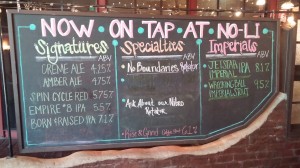 NOW ON TAP AT NO-LI
Signatures
ABV
CRÈME ALE 4.75%
AMBER ALE
SPIN CYCLE RED 5.75%
EMPIRE #8 IPA 5.5%
BORN & RAISED IPA 7%
Specialties
ABV
No Boundaries
Ask About our Nitro
Rotator
Rise & Grind
Imperials
ABV
JET STAR IPA
IMPERIAL
WRECKING BALL
IMPERIAL STOUT